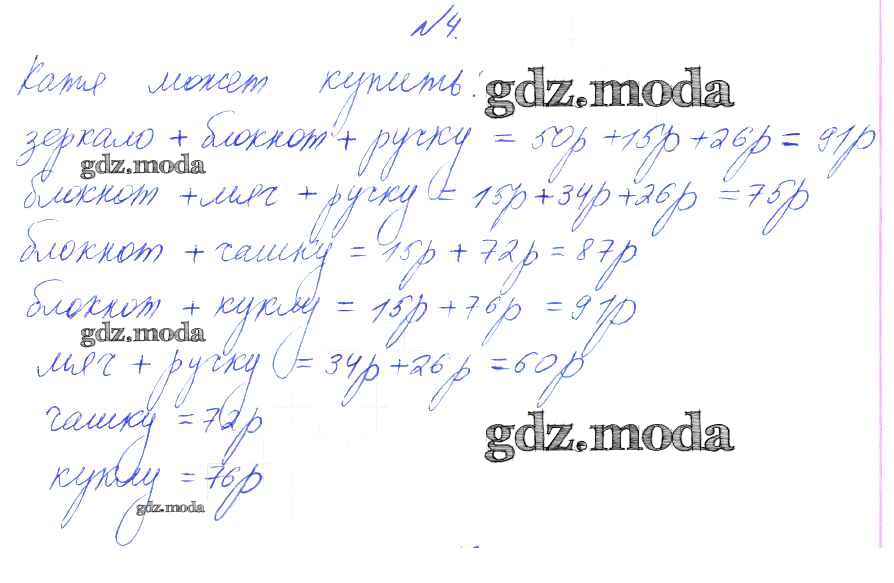 №4.
Катя может купить:
gdz.moda
зеркало + блокнот + ручку = 50р +15р +26р = 91р
gdz.moda
блокнот +мяч + ручку = 15р+34р+26р =75р
блокнот + чашку = 15р + 72р = 87р
блокнот + куклу = 15р +76р =91р
gdz.moda
мяч + ручку = 34р +26р =60р
чашку =72р
gdz.moda
куклу =76р
gdz.moda